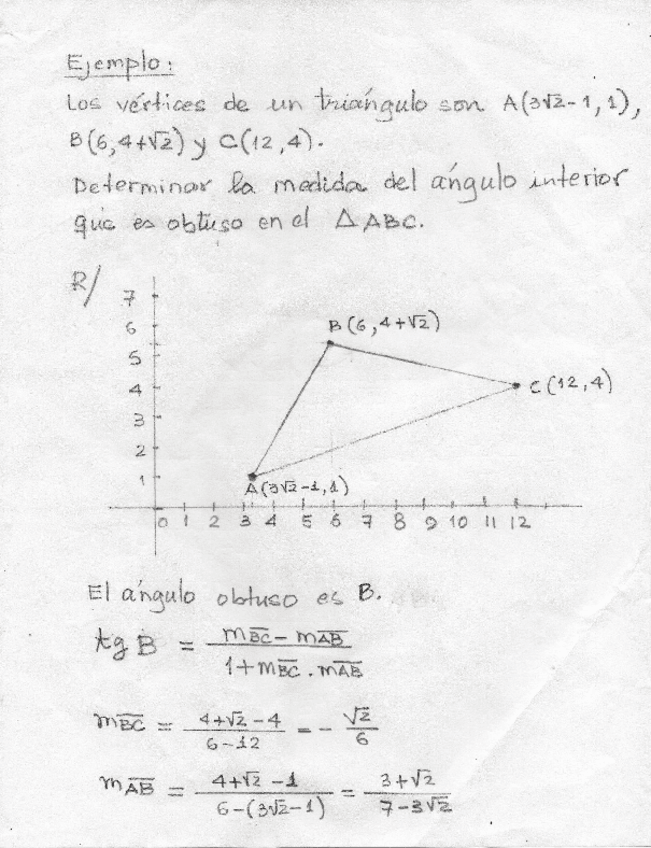 Ejemplo:
Los vértices de un triángulo son A(3√2-1,1),
B(6,4+√2) y C(12,4).
Determinar la medida del ángulo interior
que es obtuso en el △ABC.
R/
7
6
5
4
3
2
1
B(6,4+√2)
C(12,4)
A(3√2-1,1)
0 1 2 3 4 5 6 7 8 9 10 11 12
El ángulo obtuso es B.
tg B = (m\overline{BC} - m\overline{AB}) / (1 + m\overline{BC} . m\overline{AB})
m\overline{BC} = (4+√2-4) / (6-12) = - √2/6
m\overline{AB} = (4+√2-1) / (6-(3√2-1)) = (3+√2) / (7-3√2)